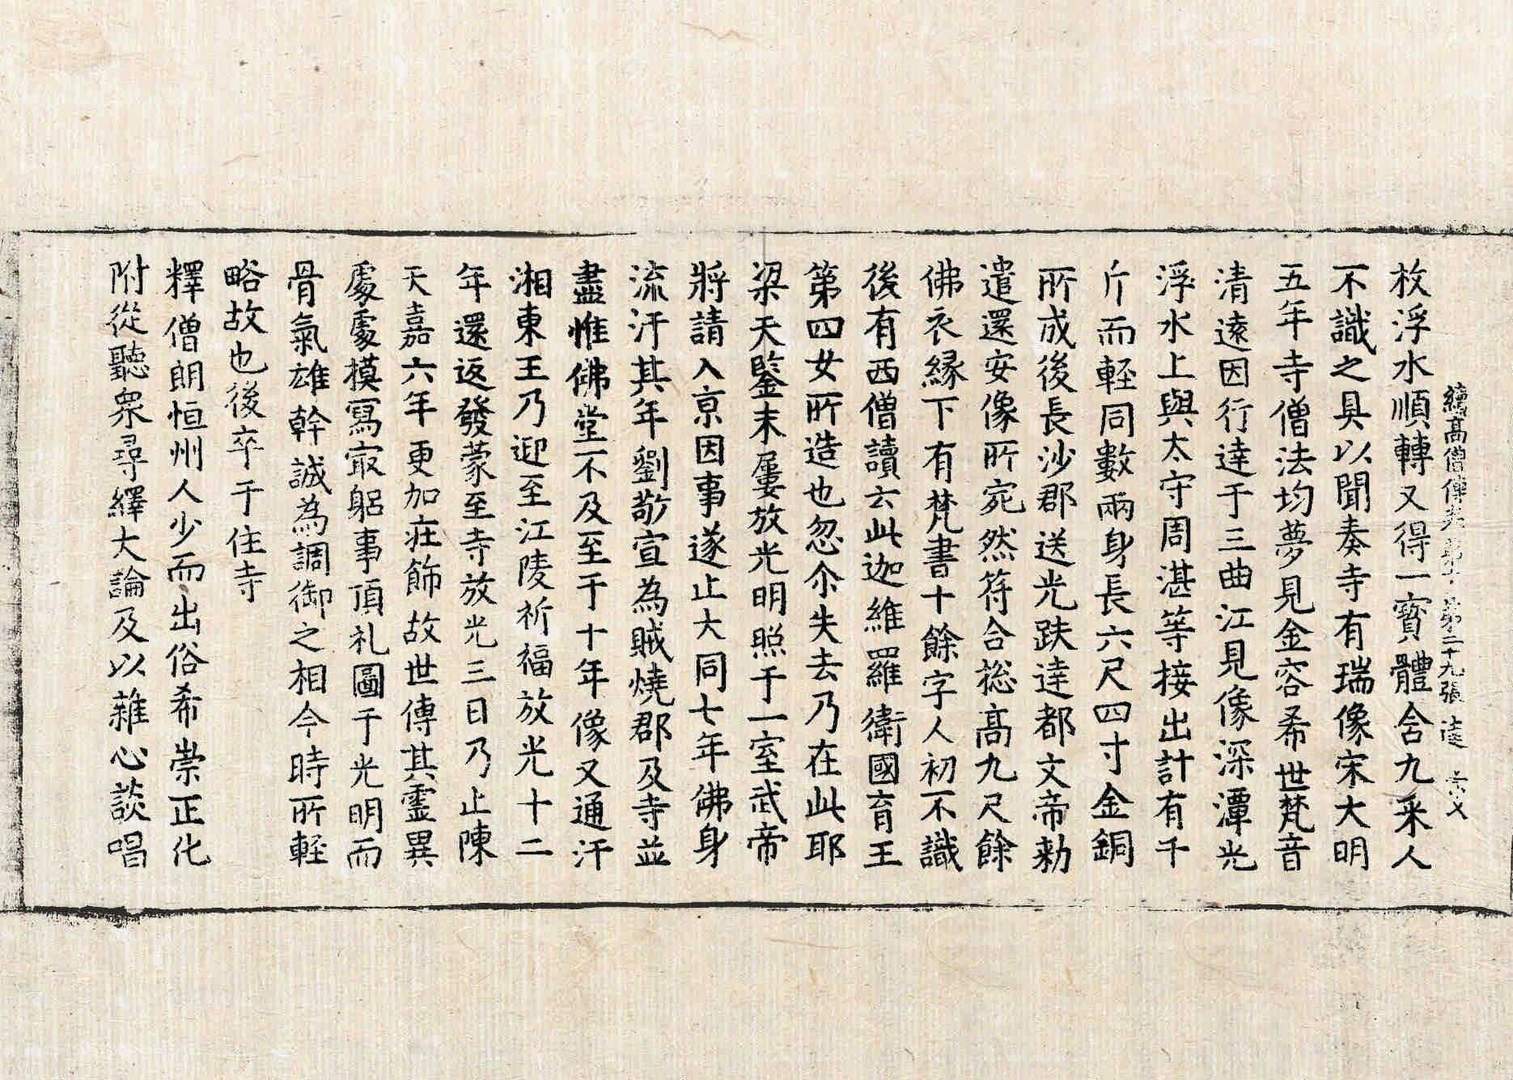 續高僧傳卷第 第二十九張 達
枚浮水順轉又得一寳體含九采人
不識之具以聞奏寺有瑞像宋大明
五年寺僧法均夢見金容希世梵音
清遠因行達于三曲江見像深潭光
浮水上與太守周湛等接出計有千
斤而輕同數兩身長六尺四寸金銅
所成後長沙郡送光趺達都文帝勑
遣還安像所宛然符合総高九尺餘
佛衣縁下有梵書十餘字人初不識
後有西僧讀云此迦維羅衛國育王
第四女所造也忽尒失去乃在此耶
梁天鑒末屢放光明照于一室武帝
將請入京因事遂止大同七年佛身
流汗其年劉敬宣為賊燒郡及寺並
盡惟佛堂不及至于十年像又通汗
湘東王乃迎至江陵祈福放光十二
年還返發蒙至寺放光三日乃止陳
天嘉六年更加莊飾故世傳其霊異
處處模寫㝡躳事頂礼圖于光明而
骨氣雄幹誠為調御之相今時所輕
略故也後卒于住寺
釋僧朗恒州人少而出俗希崇正化
附從聽衆尋繹大論及以雜心談唱